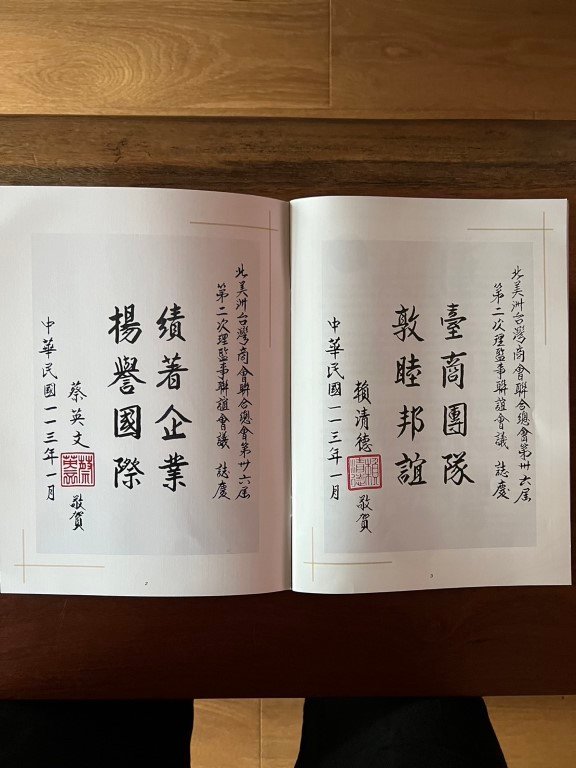 北美洲台灣商會聯合總會第卅六屆
第二次理監事聯誼會議 誌慶
績著企業
揚譽國際
蔡英文 敬賀
中華民國一一三年一月
2
北美洲台灣商會聯合總會第卅六屆
第二次理監事聯誼會議 誌慶
臺商團隊
敦睦邦誼
賴清德 敬賀
中華民國一一三年一月
3